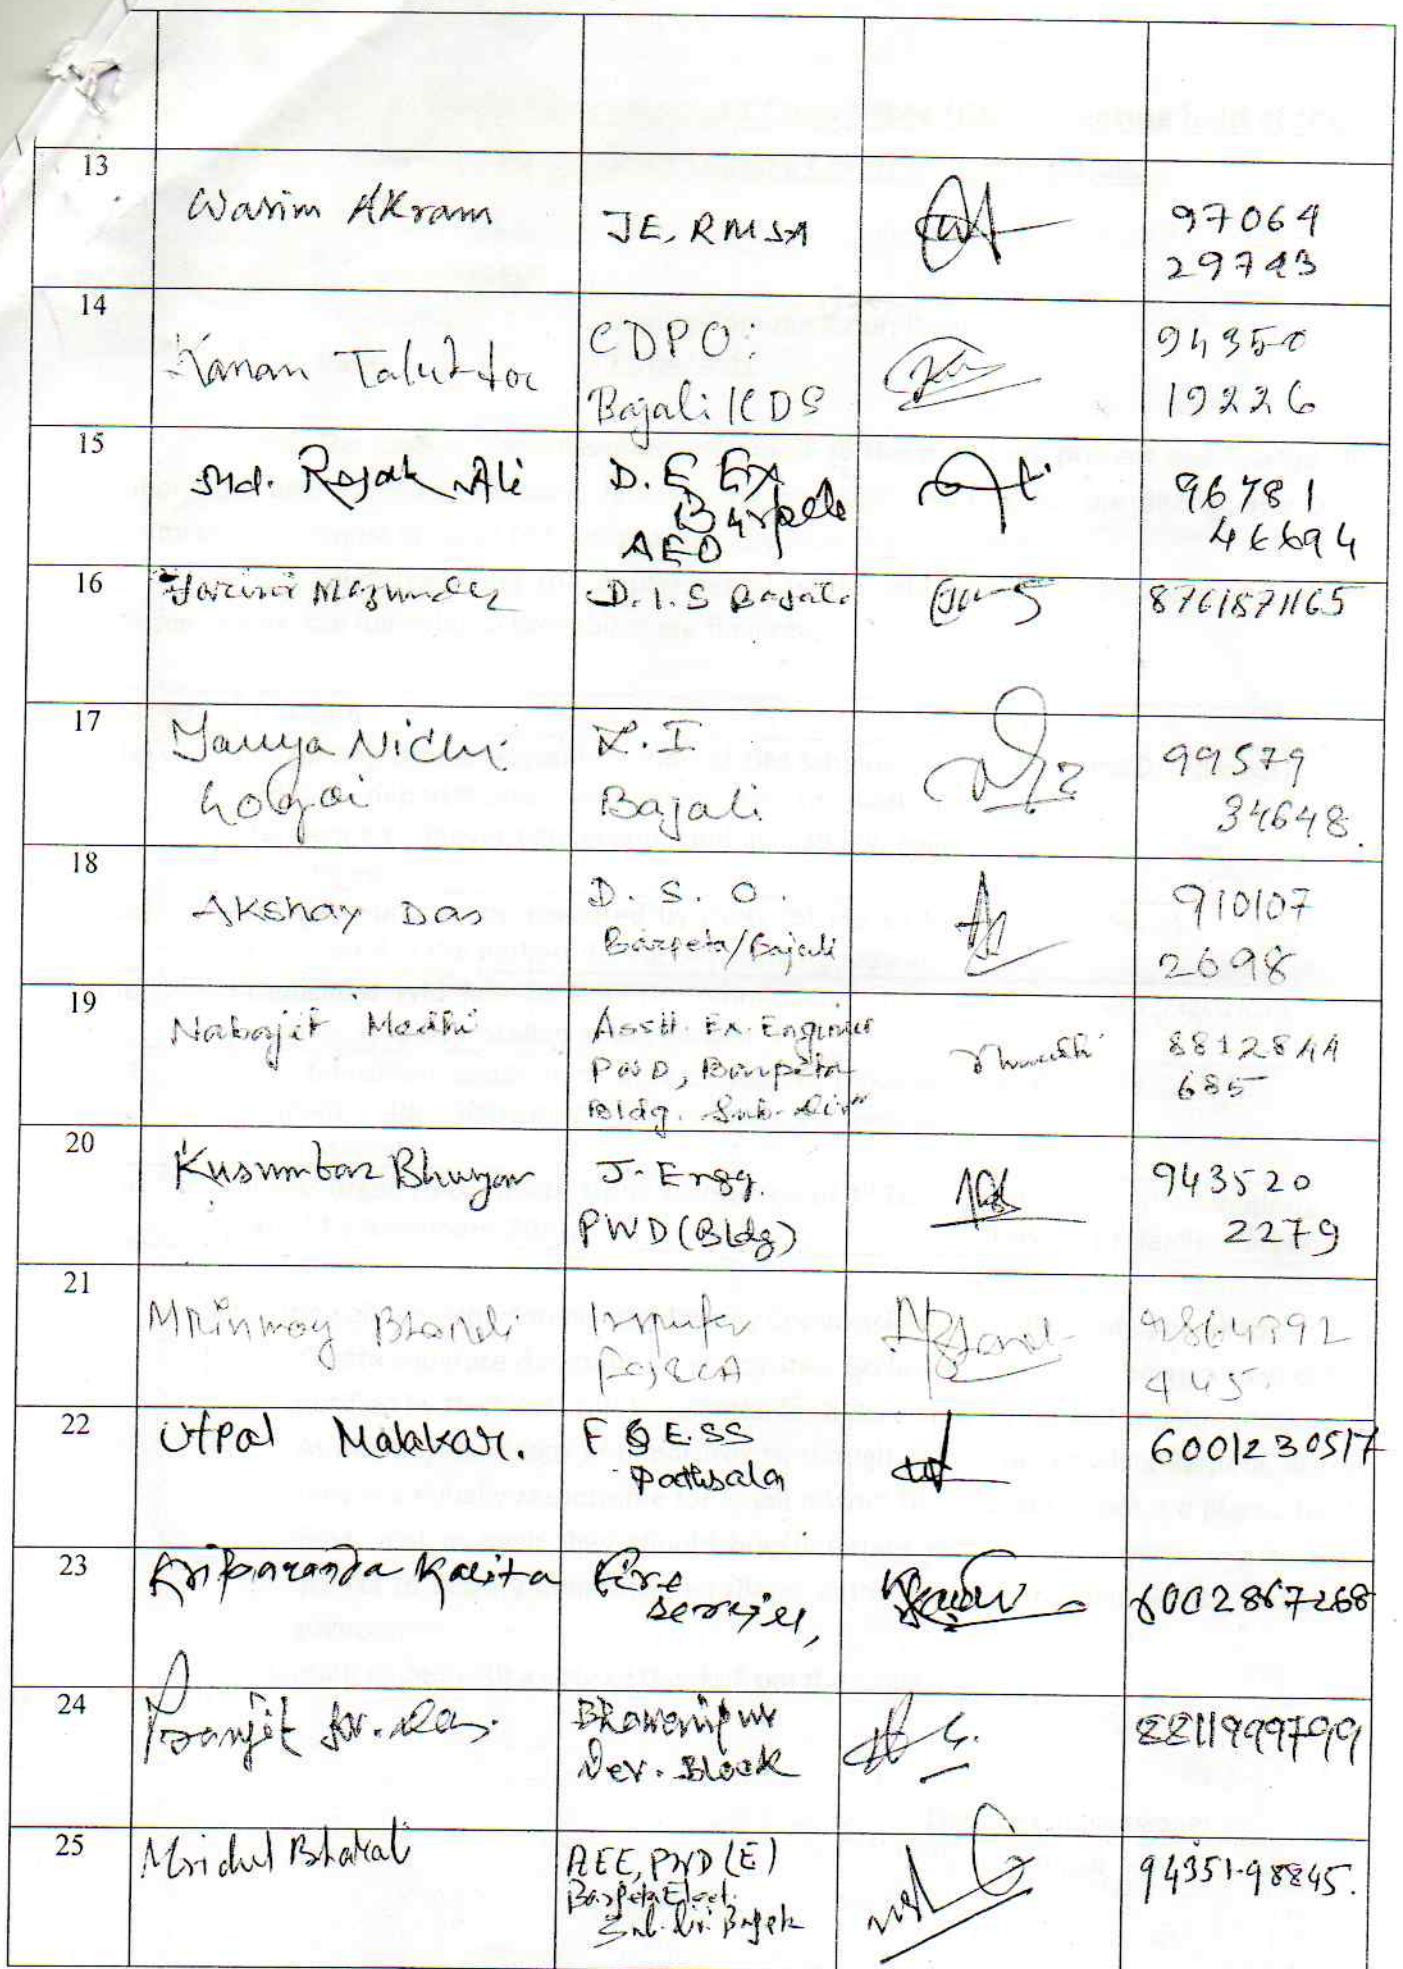 13
Wasim Akram
JE, RMSA
97064
29743
14
Kanan Talukdar
CDPO:
Bajali ICDS
94350
19226
15
Md. Rajak Ali
D.E Ex
Barpeta
AEO
96781
46694
16
Mazumder
D.I.S Bajali
8761871165
17
Gogoi
Bajali
99579
34648
18
Akshay Das
D. S. O.
Barpeta/Bajali
910107
2698
19
Nabajit Medhi
Asstt Ex. Engineer
PWD, Barpeta
Bldg. Sub-Divn
8812844
685
20
Bhuyan
J. Engg
PWD (Bldg)
943520
2279
21
Mrinmoy
445
22
Utpal Malakar.
F & E.SS
Pathsala
6001230517
23
Kriparanda Kalita
Fire
Services,
6002867268
24
Pranjit Kr. Das.
Bhawanipur
Dev. Block
8811999799
25
Mridul Bharali
AEE, PWD (E)
Barpeta Elect.
94351-98845.